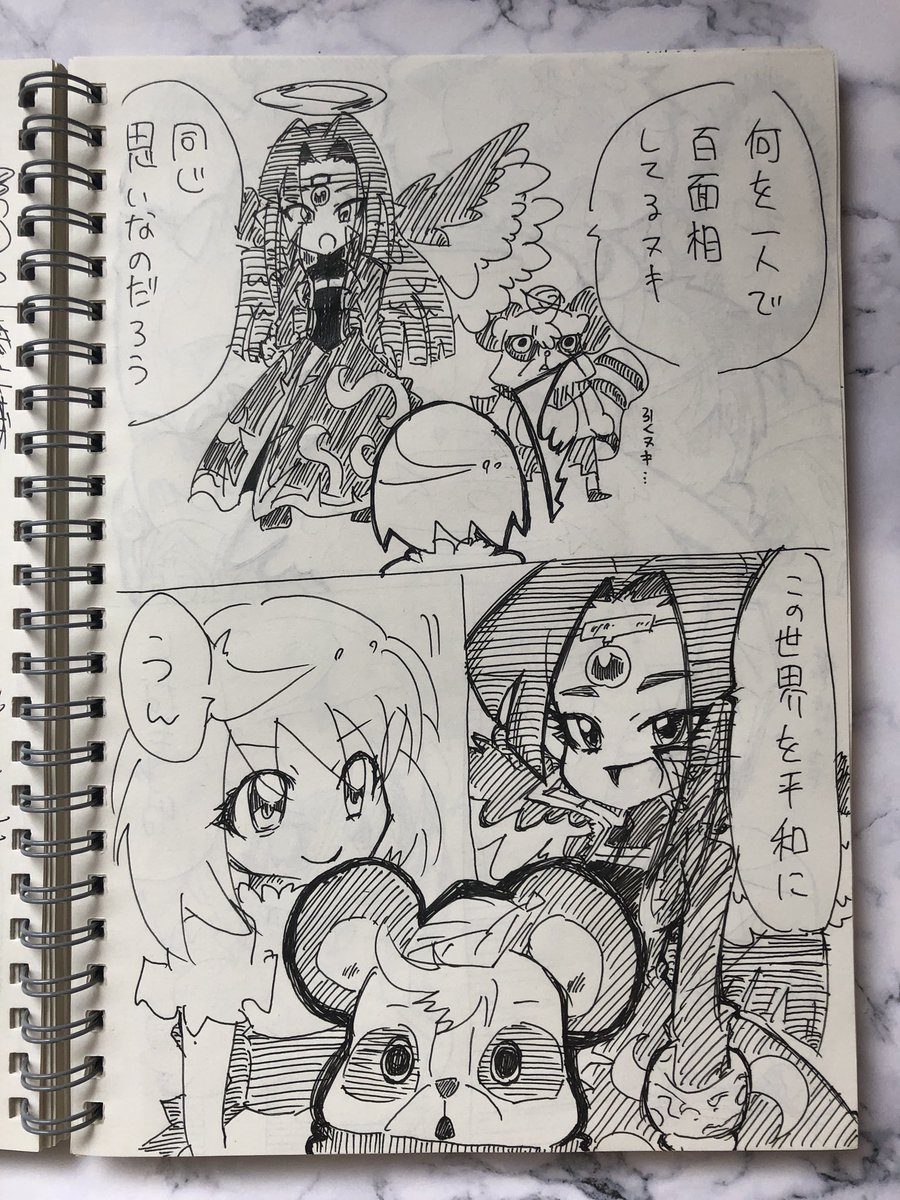 何を一人で
百面相
してるヌキ
引くヌキ…
同じ
思いなのだろう
この世界を平和に
うん